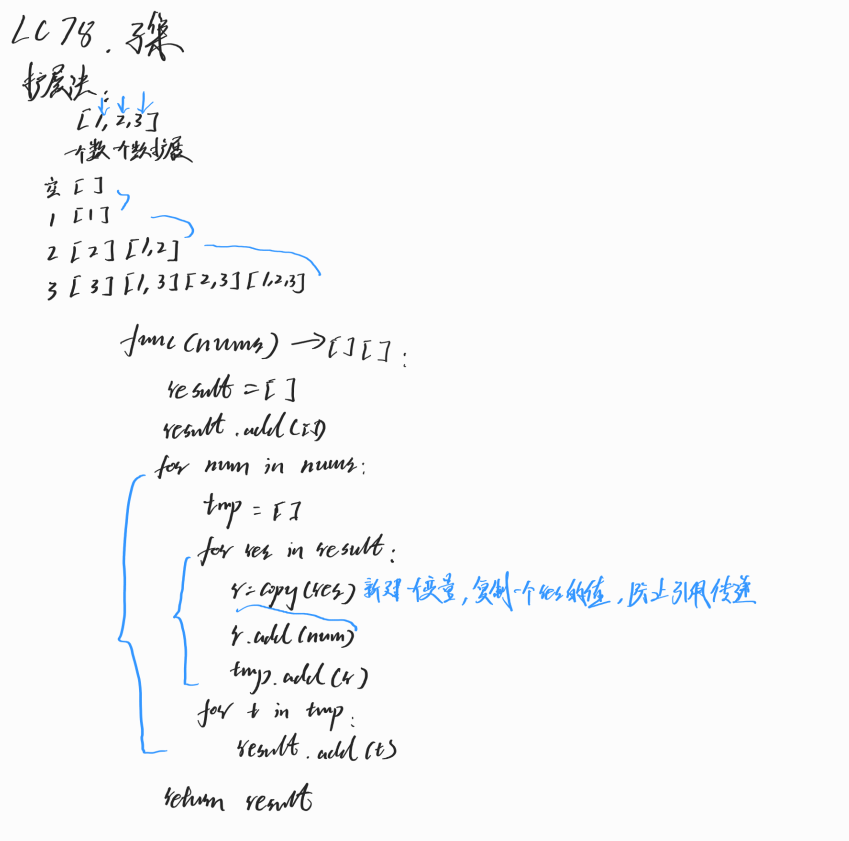 LC 78. 子集
扩展法:
[1,2,3]
一个数一个数扩展
空 []
1 [1]
2 [2] [1,2]
3 [3] [1,3] [2,3] [1,2,3]
func(nums) → [][]:
result = []
result.add([])
for num in nums:
tmp = []
for res in result:
r = copy(res) 新建一个变量,复制一个res的值,防止引用传递
r.add(num)
tmp.add(r)
for t in tmp:
result.add(t)
return result